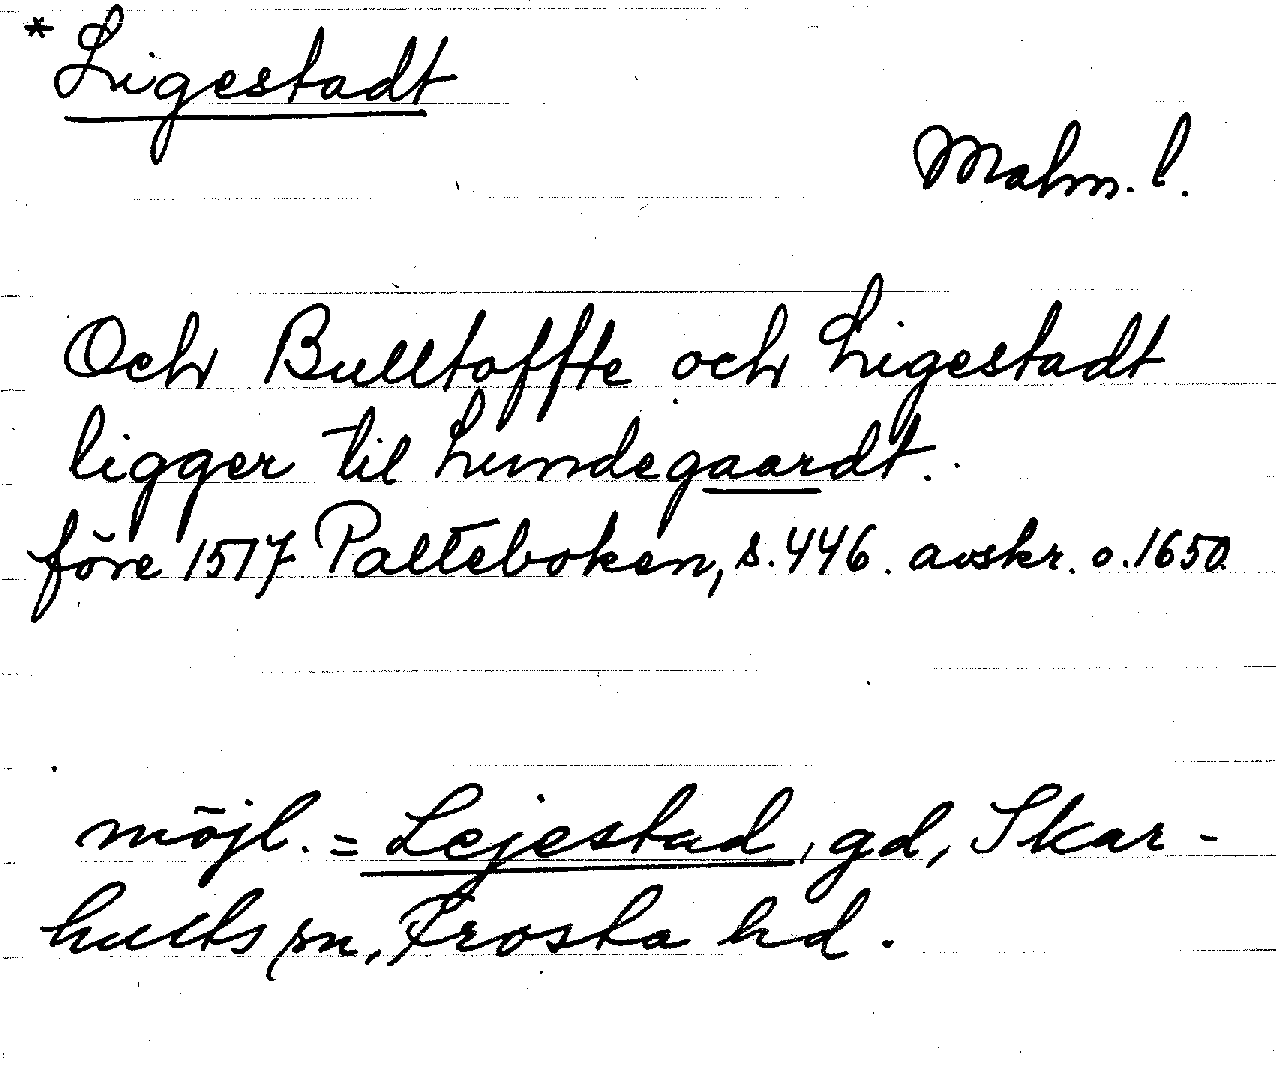 *Ligestadt
Malm. l.
Och Bulltoffte och Ligestadt
ligger til Lundegaardt.
före 1517 Palteboken, s. 446. avskr. o. 1650
möjl. = Lejestad, gd, Skar-
hults sn, Frosta hd.